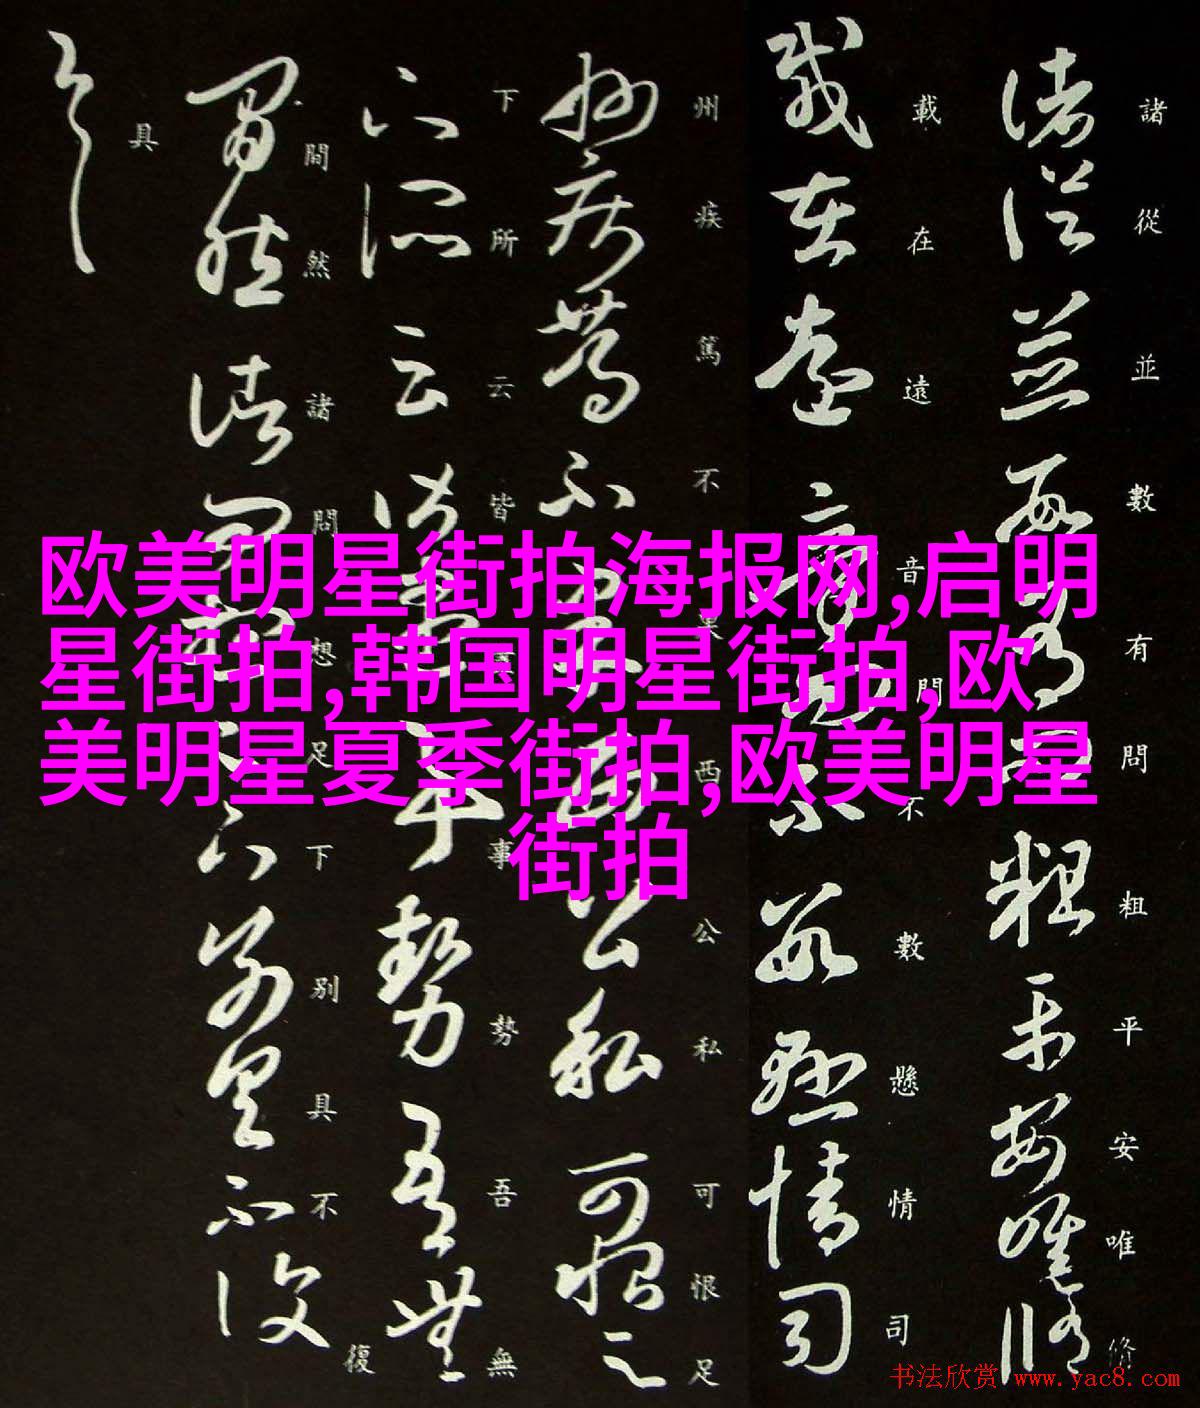 諸從並數有問粗平安唯脩
載在遠音問不數懸情司
州疾篤不果西公私可恨足
下所云皆事勢吾無
間然諸問想足下別具不復
具
欧美明星街拍海报网,启明
星街拍,韩国明星街拍,欧
美明星夏季街拍,欧美明星
街拍
书法欣赏 www.yac8.com